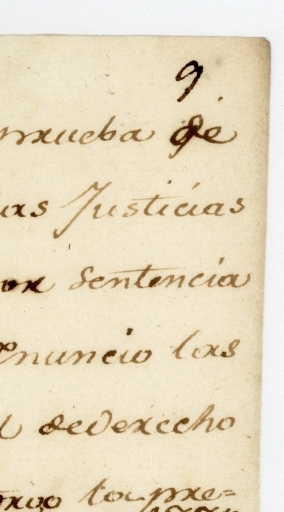 9
prueba de
las Justicias
por Sentencia
enuncio las
l dederecho
la pre=